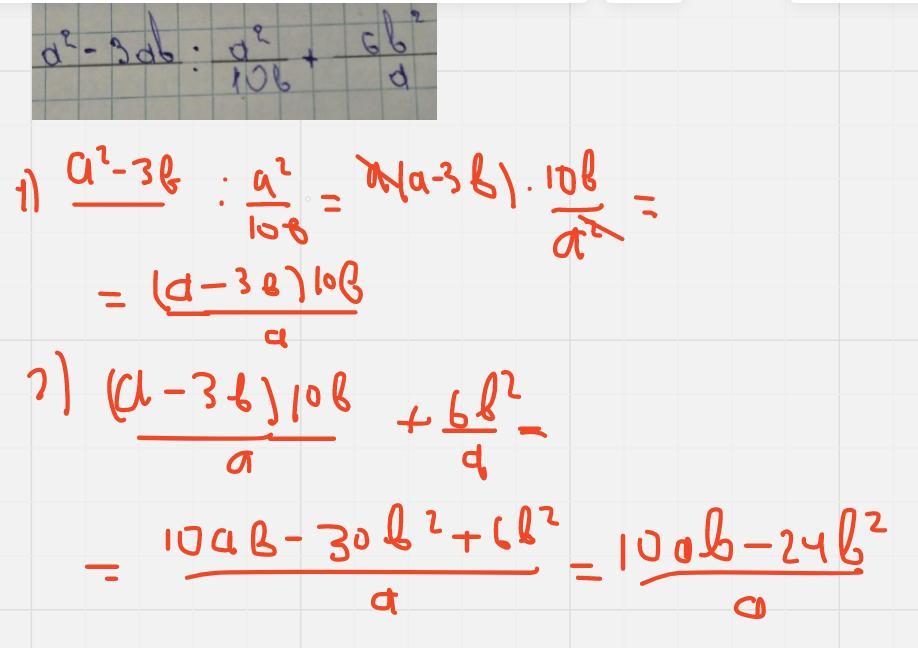 a² - 3ab : a²/10b + 6b²/a
1) a² - 3b : a²/10b = a(a-3b) · 10b/a² =
= (a - 3b)10b/a
2) (a - 3b)10b/a + 6b²/a =
= 10ab - 30b² + 6b²/a = 10ab - 24b²/a